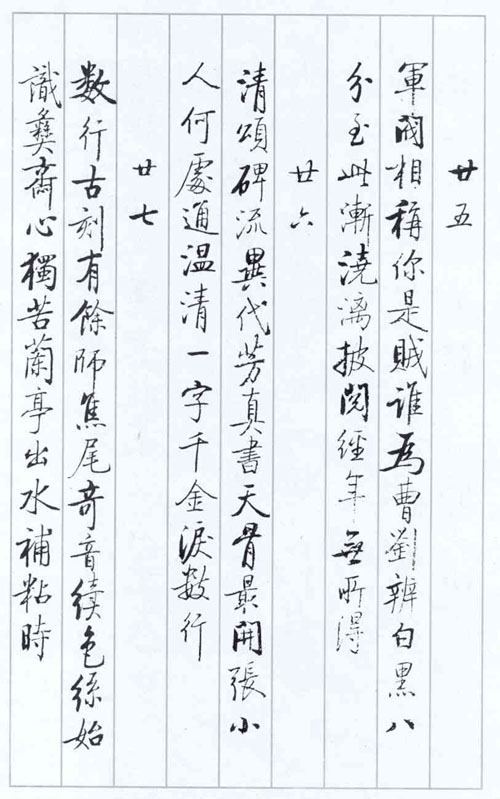 廿五
軍閥相稱你是賊誰爲曹劉辨白黑八
分至此漸澆漓披閱經年無所得
廿六
清頌碑流異代芳真書天骨最開張小
人何處通温清一字千金淚數行
廿七
数行古刻有餘師焦尾奇音續色絲始
識彝齋心獨苦蘭亭出水補粘時